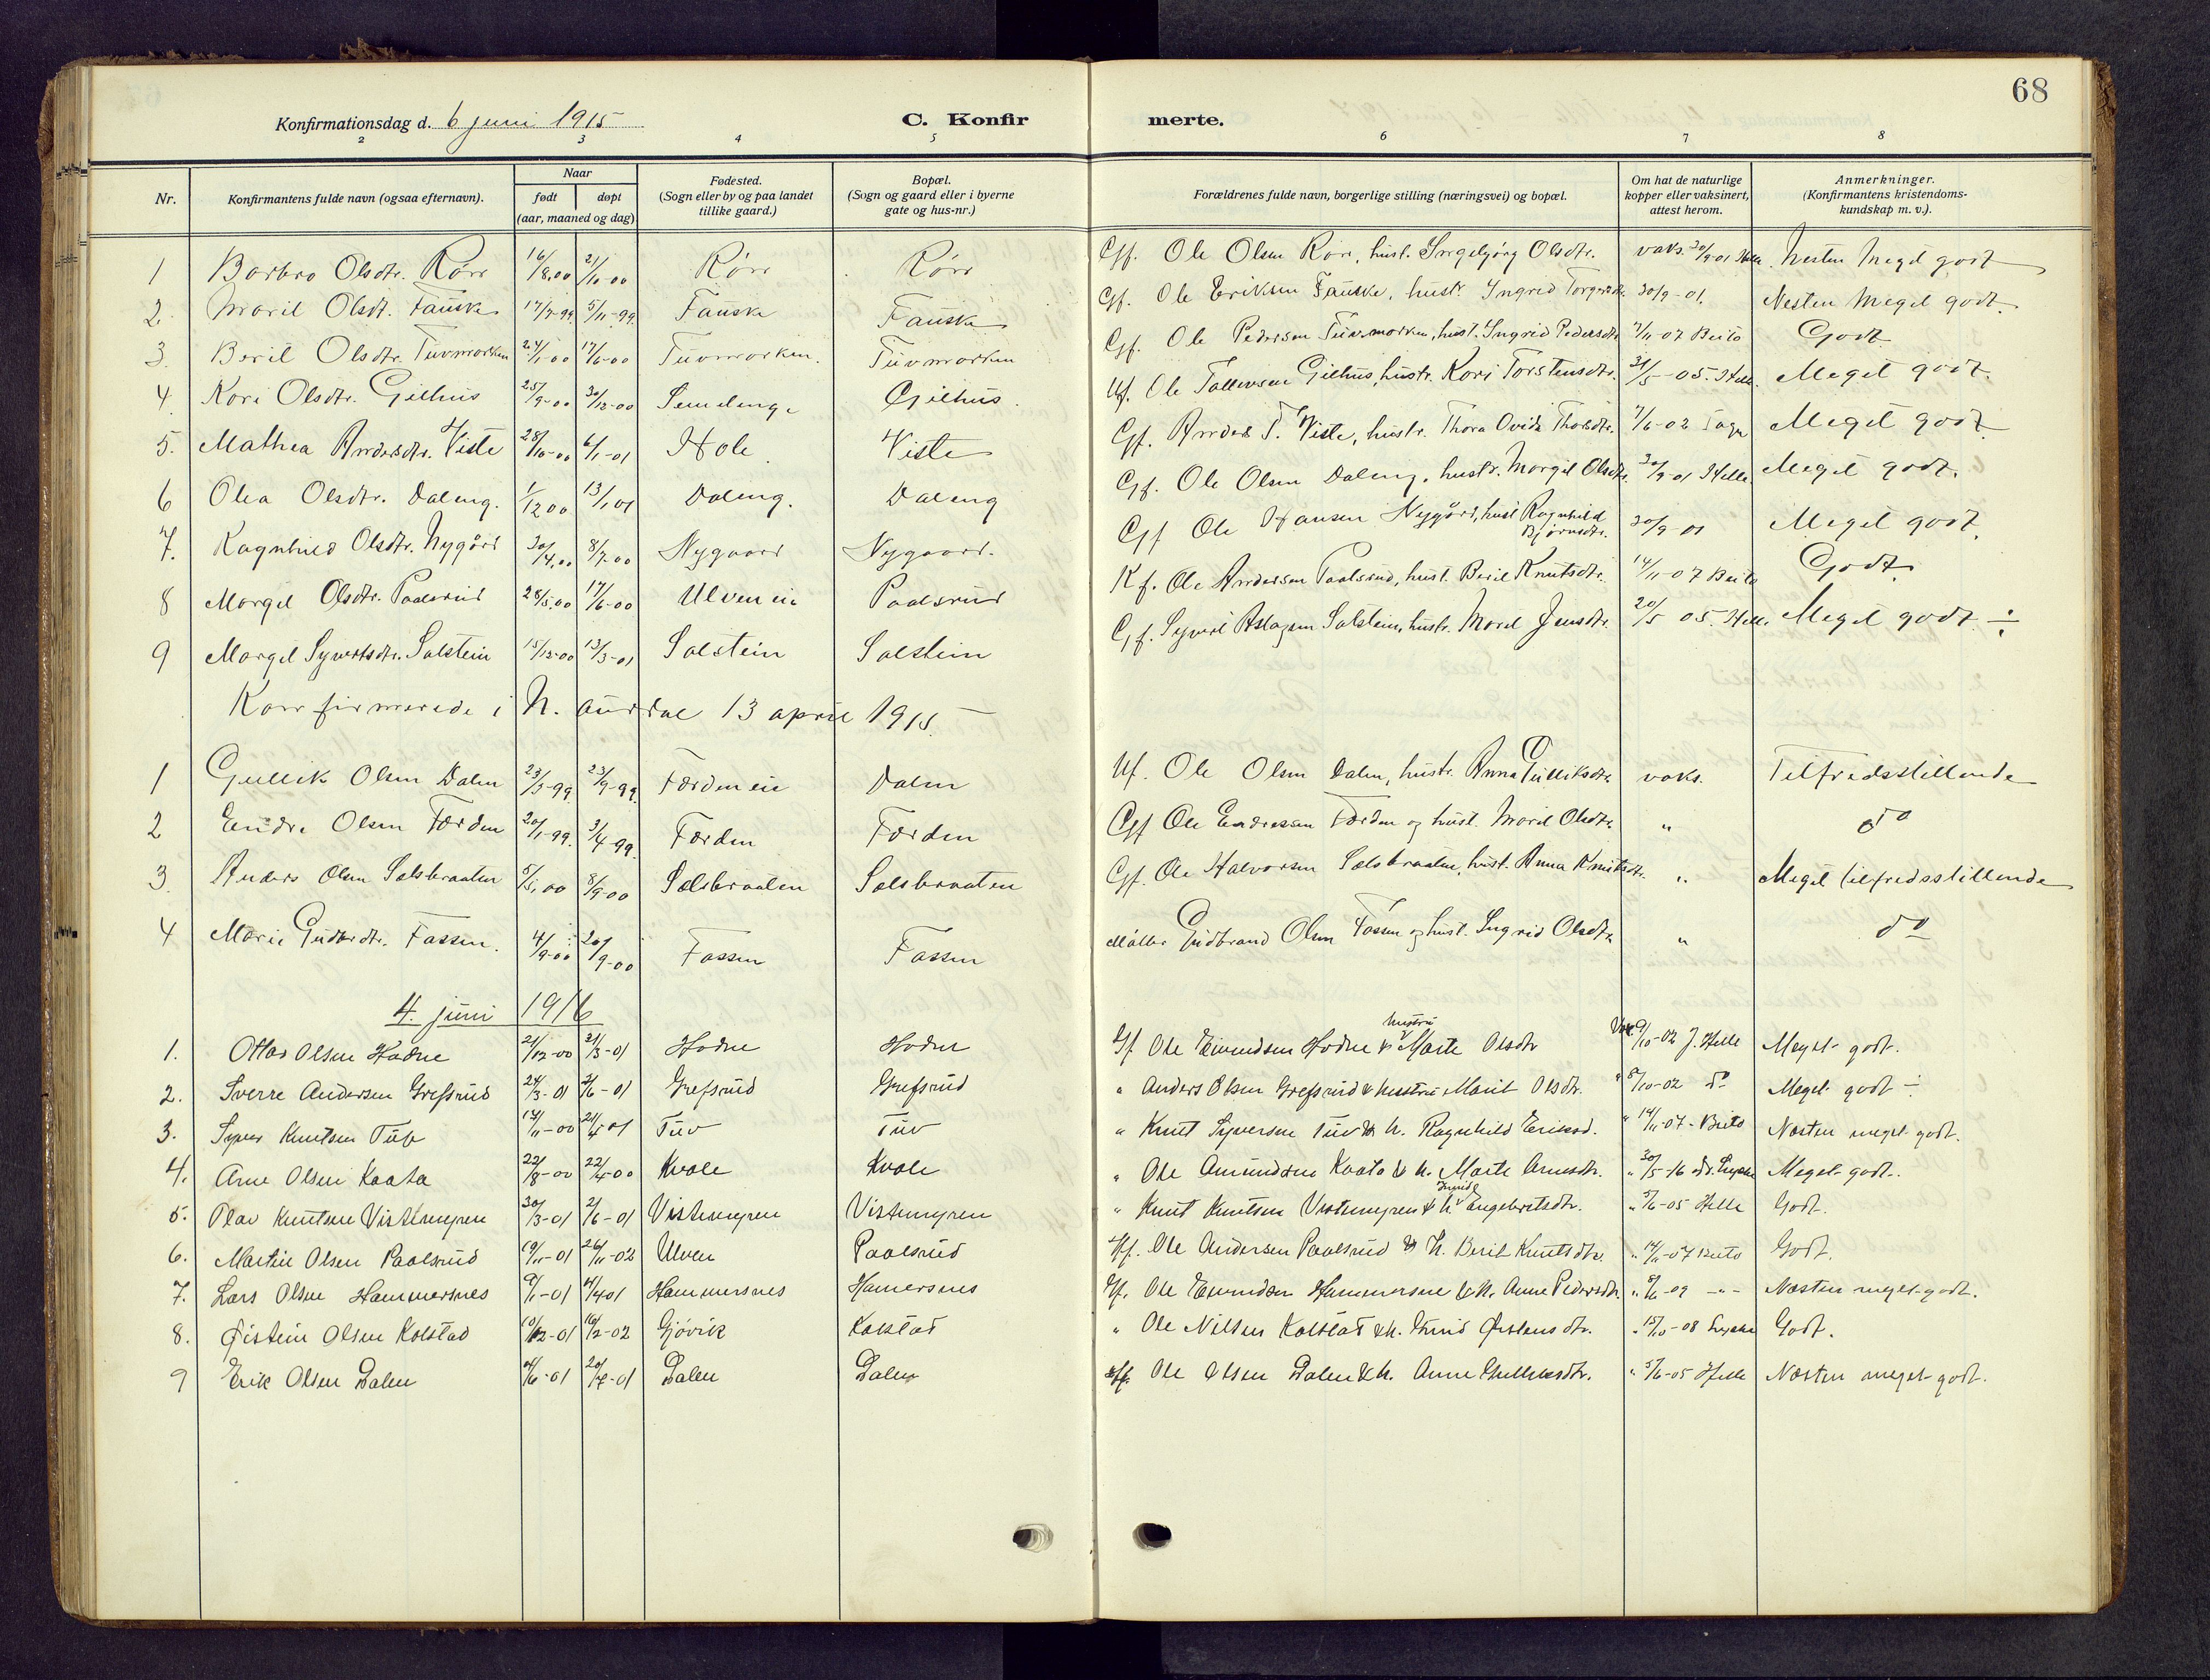 68
Konfirmationsdag d. 6 juni 1915
C. Konfir merte.
2 3 4 5 6 7 8
Nr. Konfirmantens fulde navn (ogsaa efternavn). Naar født døpt (aar, maaned og dag) Fødested. (Sogn eller by og paa landet tillike gaard.) Bopæl. (Sogn og gaard eller i byerne gate og hus-nr.) Forældrenes fulde navn, borgerlige stilling (næringsvei) og bopæl. Om hat de naturlige kopper eller vaksinert, attest herom. Anmerkninger. (Konfirmantens kristendoms-kundskap m. v.).
1 Barbro Olsdtr. Rörr 16/8,00 21/10-00 Rörr Rörr Gf. Ole Olsen Rörr, hust. Ingebjörg Olsdtr. vaks. 30/9-01 Helle. Nesten Meget godt
2. Marit Olsdt. Fauske 17/7-99. 5/11-99. Fauske Fauske Gf. Ole Eriksen Fauske, hustr. Ingrid 30/9-01. Nesten Meget godt.
3. Beril Olsdtr. Tuvmarken 24/1-00 17/6-00 Tuvmarken. Tuvmarken Gf. Ole Pedersen Tuvmarken, hust. Ingrid Pedersdtr. 7/11-07 Beito Godt
4. Kari Olsdtr. Gilhus 25/9-00 30/12-00 Semeleng. Gilhus. Uf. Ole Tollevsen Gilhus, hustr. Kari Torstensdtr. 31/5-05. Helle. Meget godt.
5. Mathea Andersdtr. Viste 28/10-00 6/1-01 Hole Viste Gf. Anders T. Viste, hustr. Thora Ovida Thorsdtr. 7/6-02 Meget godt
6 Olea Olsdtr. Daleng. 1/12 00 13/1,01 Daleng. Daleng Gf. Ole Olsen Daleng, hustr. Margit Olsdtr. 30/9-01 Helle. Meget godt.
7. Ragnhild Olsdtr. Nygård 30/4,00 8/7-00 Nygaard Nygaard. Gf Ole Hansen Nygård, hust Ragnhild Björnsdtr. 30/9-01 Meget godt.
8 Margit Olsdtr. Paalsrud 28/5,00 17/6-00 Ulven eie Paalsrud Kf. Ole Andersen Paalsrud, hust. Beril Knutsdtr. 14/11-07 Beito Godt
9 Margit Syvertsdtr. Salstein 15/12-00 13/3-01 Salstein Salstein Gf. Syvert Aslagsen Salstein, hustr. Marit Jensdtr. 20/5 05. Helle. Meget godt ÷
Konfirmerede i N. Aurdal 13 april 1915.
1 Gullik Olsen Dalen 23/3-99 23/9-99. Førden eie Dalen Uf. Ole Olsen Dalen, hustr. Anna Gulliksdtr. vaks. Tilfredsstillende
2 Endre Olsen Førden 20/1-99. 3/4-99. Førden Førden Gf Ole Endresen Førden og hust. Marit Olsdtr. " do
3. Anders Olsen Sælsbraaten 5/5,00 8/9-00 Sælsbraaten Sælsbraaten Gf. Ole Halvorsen Sælsbraaten, hust. Anna Knutsdtr. " Meget tilfredsstillende
4 Marie Gudbrdtr. Fassen. 4/9-00 20/9-00 Fassen Fassen Møller Gudbrand Olsen Fossen og hust. Ingrid Olsdtr. " do
4. juni 1916
1. Ottar Olsen Hadne 21/12-00 21/3-01 Hodne Hodne Gf. Ole Eivindsen Hodne & hustru Marte Olsdtr Vak. 9/10-02 J. Helle Meget godt.
2. Sverre Andersen Grefsrud 24/3-01 2/6-01 Grefsrud Grefsrud " Anders Olsen Grefsrud & hustru Marit Olsdtr. " 8/10-02 do Meget godt ÷
3. Syver Knutsen Tuv 17/11-00 21/4-01 Tuv Tuv " Knut Syversen Tuv & h. Ragnhild Eriksd. " 14/11-07 - Beito Næsten meget godt.
4. Arne Olsen Kaata 22/8-00 22/4-00 Kvale Kvale " Ole Amundsen Kaata & h. Marte Arnesdtr. " 30/5-16 dr. Meget godt.
5. Olav Knutsen Vistemyren 30/3-01 2/6-01 Vistemyren Vistemyren " Knut Knutsen Vistemyren & h. Engebretsdtr. " 5/6-05 Helle Godt.
6. Martin Olsen Paalsrud 19/11-01 26/11-02 Ulven Paalsrud Kf. Ole Andersen Paalsrud & h. Berit Knutsdtr. " 14/11-07 Beito Godt.
7. Lars Olsen Hammersnes 9/1-01 4/4 01 Hammersnes Hamersnes Gf. Ole Eivindsen Hammersne & h. Anne Pedersdtr. " 8/6-09 -"- Næsten meget godt.
8. Øistein Olsen Kolstad 10/12-01 16/2-02 Gjövik Kolstad " Ole Nilsen Kolstad & h. Østensdtr. " 15/10-08 Godt.
9 Erik Olsen Dalen 4/6-01 20/7-01 Dalen Dalen Ole Olsen Dalen & h. Anne Gulliksdtr. " 5/6-05 Helle Næsten meget godt.